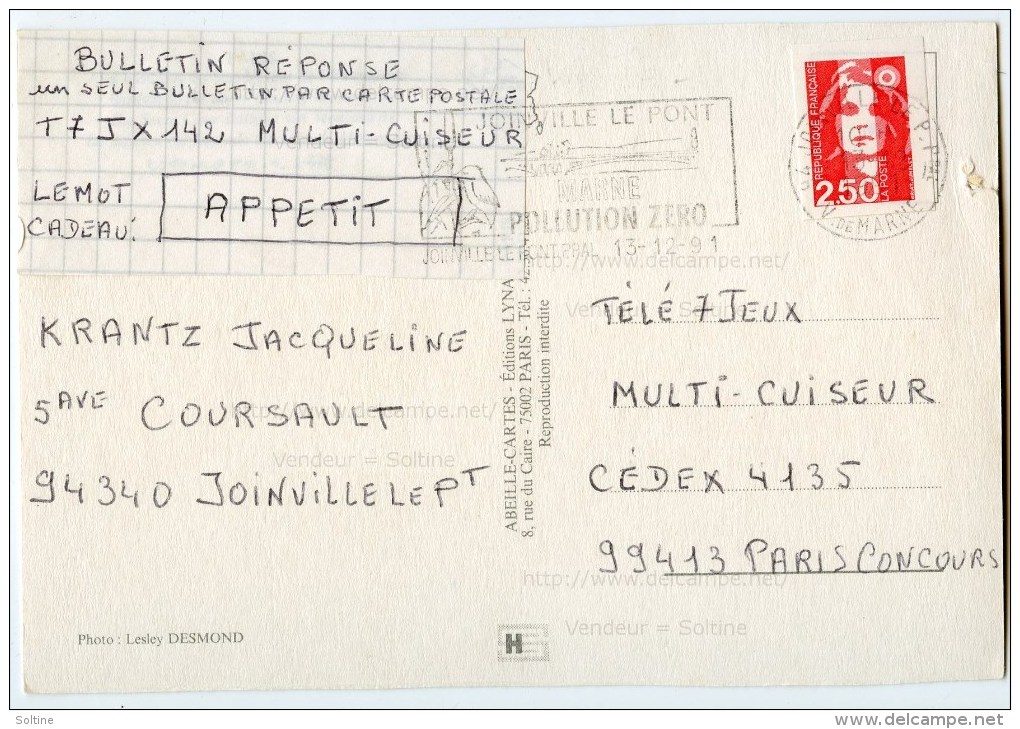 BULLETIN RÉPONSE
un SEUL BULLETIN PAR CARTE POSTALE
T7JX142 MULTI-CUISEUR
LEMOT
CADEAU:
APPETIT
JOINVILLE LE PONT
MARNE
POLLUTION ZERO
JOINVILLE LE PONT PPAL 13-12-91
RÉPUBLIQUE FRANÇAISE
2,50
LA POSTE
V. DE MARNE
KRANTZ JACQUELINE
5 AVE COURSAULT
94340 JOINVILLE LE PT
Photo : Lesley DESMOND
ABEILLE-CARTES - Éditions LYNA
8, rue du Caire - 75002 PARIS - Tél. : 42.
Reproduction interdite
TÉLÉ 7 JEUX
MULTI-CUISEUR
CÉDEX 4135
99413 PARIS CONCOURS
http://www.delcampe.net/
Vendeur = Soltine
http://www.delcampe.net/
Vendeur = Soltine
http://www.delcampe.net/
Vendeur = Soltine
H
Soltine
www.delcampe.net